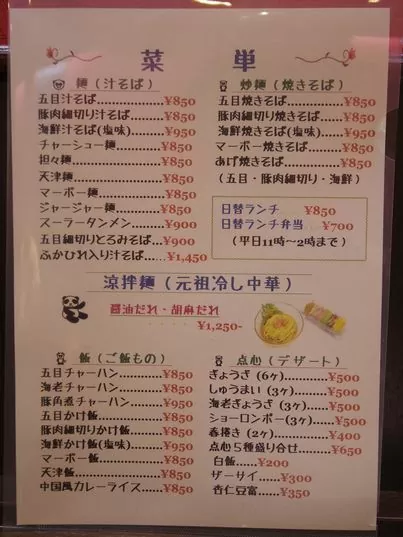 菜 単
麺(汁そば)
五目汁そば............¥850
豚肉細切り汁そば......¥850
海鮮汁そば(塩味)......¥950
チャーシュー麺........¥850
担々麺................¥850
天津麺................¥850
マーボー麺............¥850
ジャージャー麺........¥850
スーラータンメン......¥900
五目細切りとろみそば...¥900
ふかひれ入り汁そば....¥1,450
炒麺(焼きそば)
五目焼きそば..........¥850
豚肉細切り焼きそば....¥850
海鮮焼きそば(塩味)....¥950
マーボー焼きそば......¥850
あげ焼きそば..........¥850
(五目・豚肉細切り・海鮮)
日替ランチ ¥850
日替ランチ弁当 ¥700
(平日11時〜2時まで)
涼拌麺(元祖冷し中華)
醤油だれ・胡麻だれ
¥1,250-
飯(ご飯もの)
五目チャーハン......¥850
海老チャーハン......¥850
豚角煮チャーハン....¥950
五目かけ飯..........¥850
豚肉細切りかけ飯....¥850
海鮮かけ飯(塩味)....¥950
マーボー飯..........¥850
天津飯..............¥850
中国風カレーライス...¥850
点心(デザート)
ぎょうざ(6ヶ)......¥500
しゅうまい(3ヶ)....¥500
海老ぎょうざ(3ヶ)...¥500
ショーロンポー(3ヶ)...¥500
春捲き(2ヶ)........¥400
点心5種盛り合せ......¥650
白飯......¥200
ザーサイ......¥300
杏仁豆富......¥350